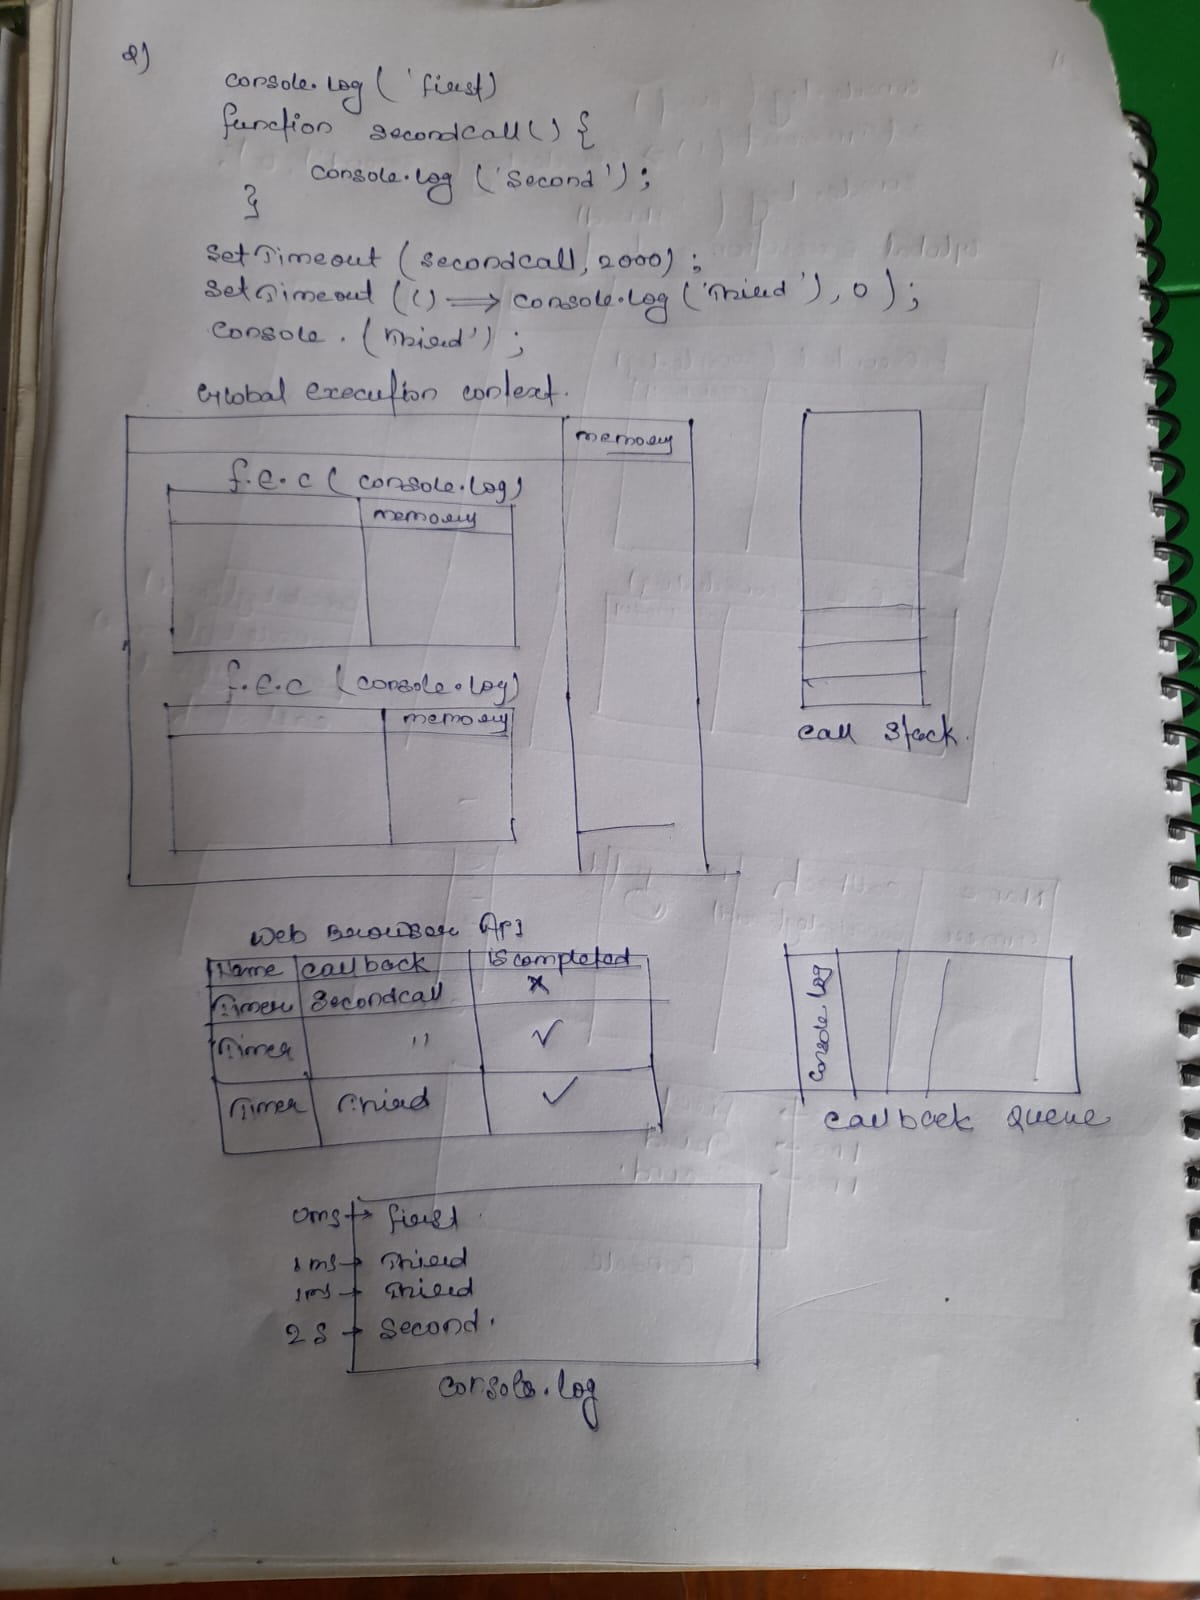 2)
console.log ( 'first)
function secondcall () {
console.log ('Second');
}
SetTimeout (secondcall, 2000) ;
SetTimeout (() => console.log ('Third'), 0 ) ;
Console . (Third') ;
Global execution context.
memory
f.e.c ( console.log)
memory
f.e.c (console.log)
memory
Call Stack.
Web Browser API
Name callback is completed
Timer Secondcall x
Timer " ✓
Timer Third ✓
Console log
Callback Queue
0ms → first
1ms → Third
1ms → Third
2s → Second.
Console.log